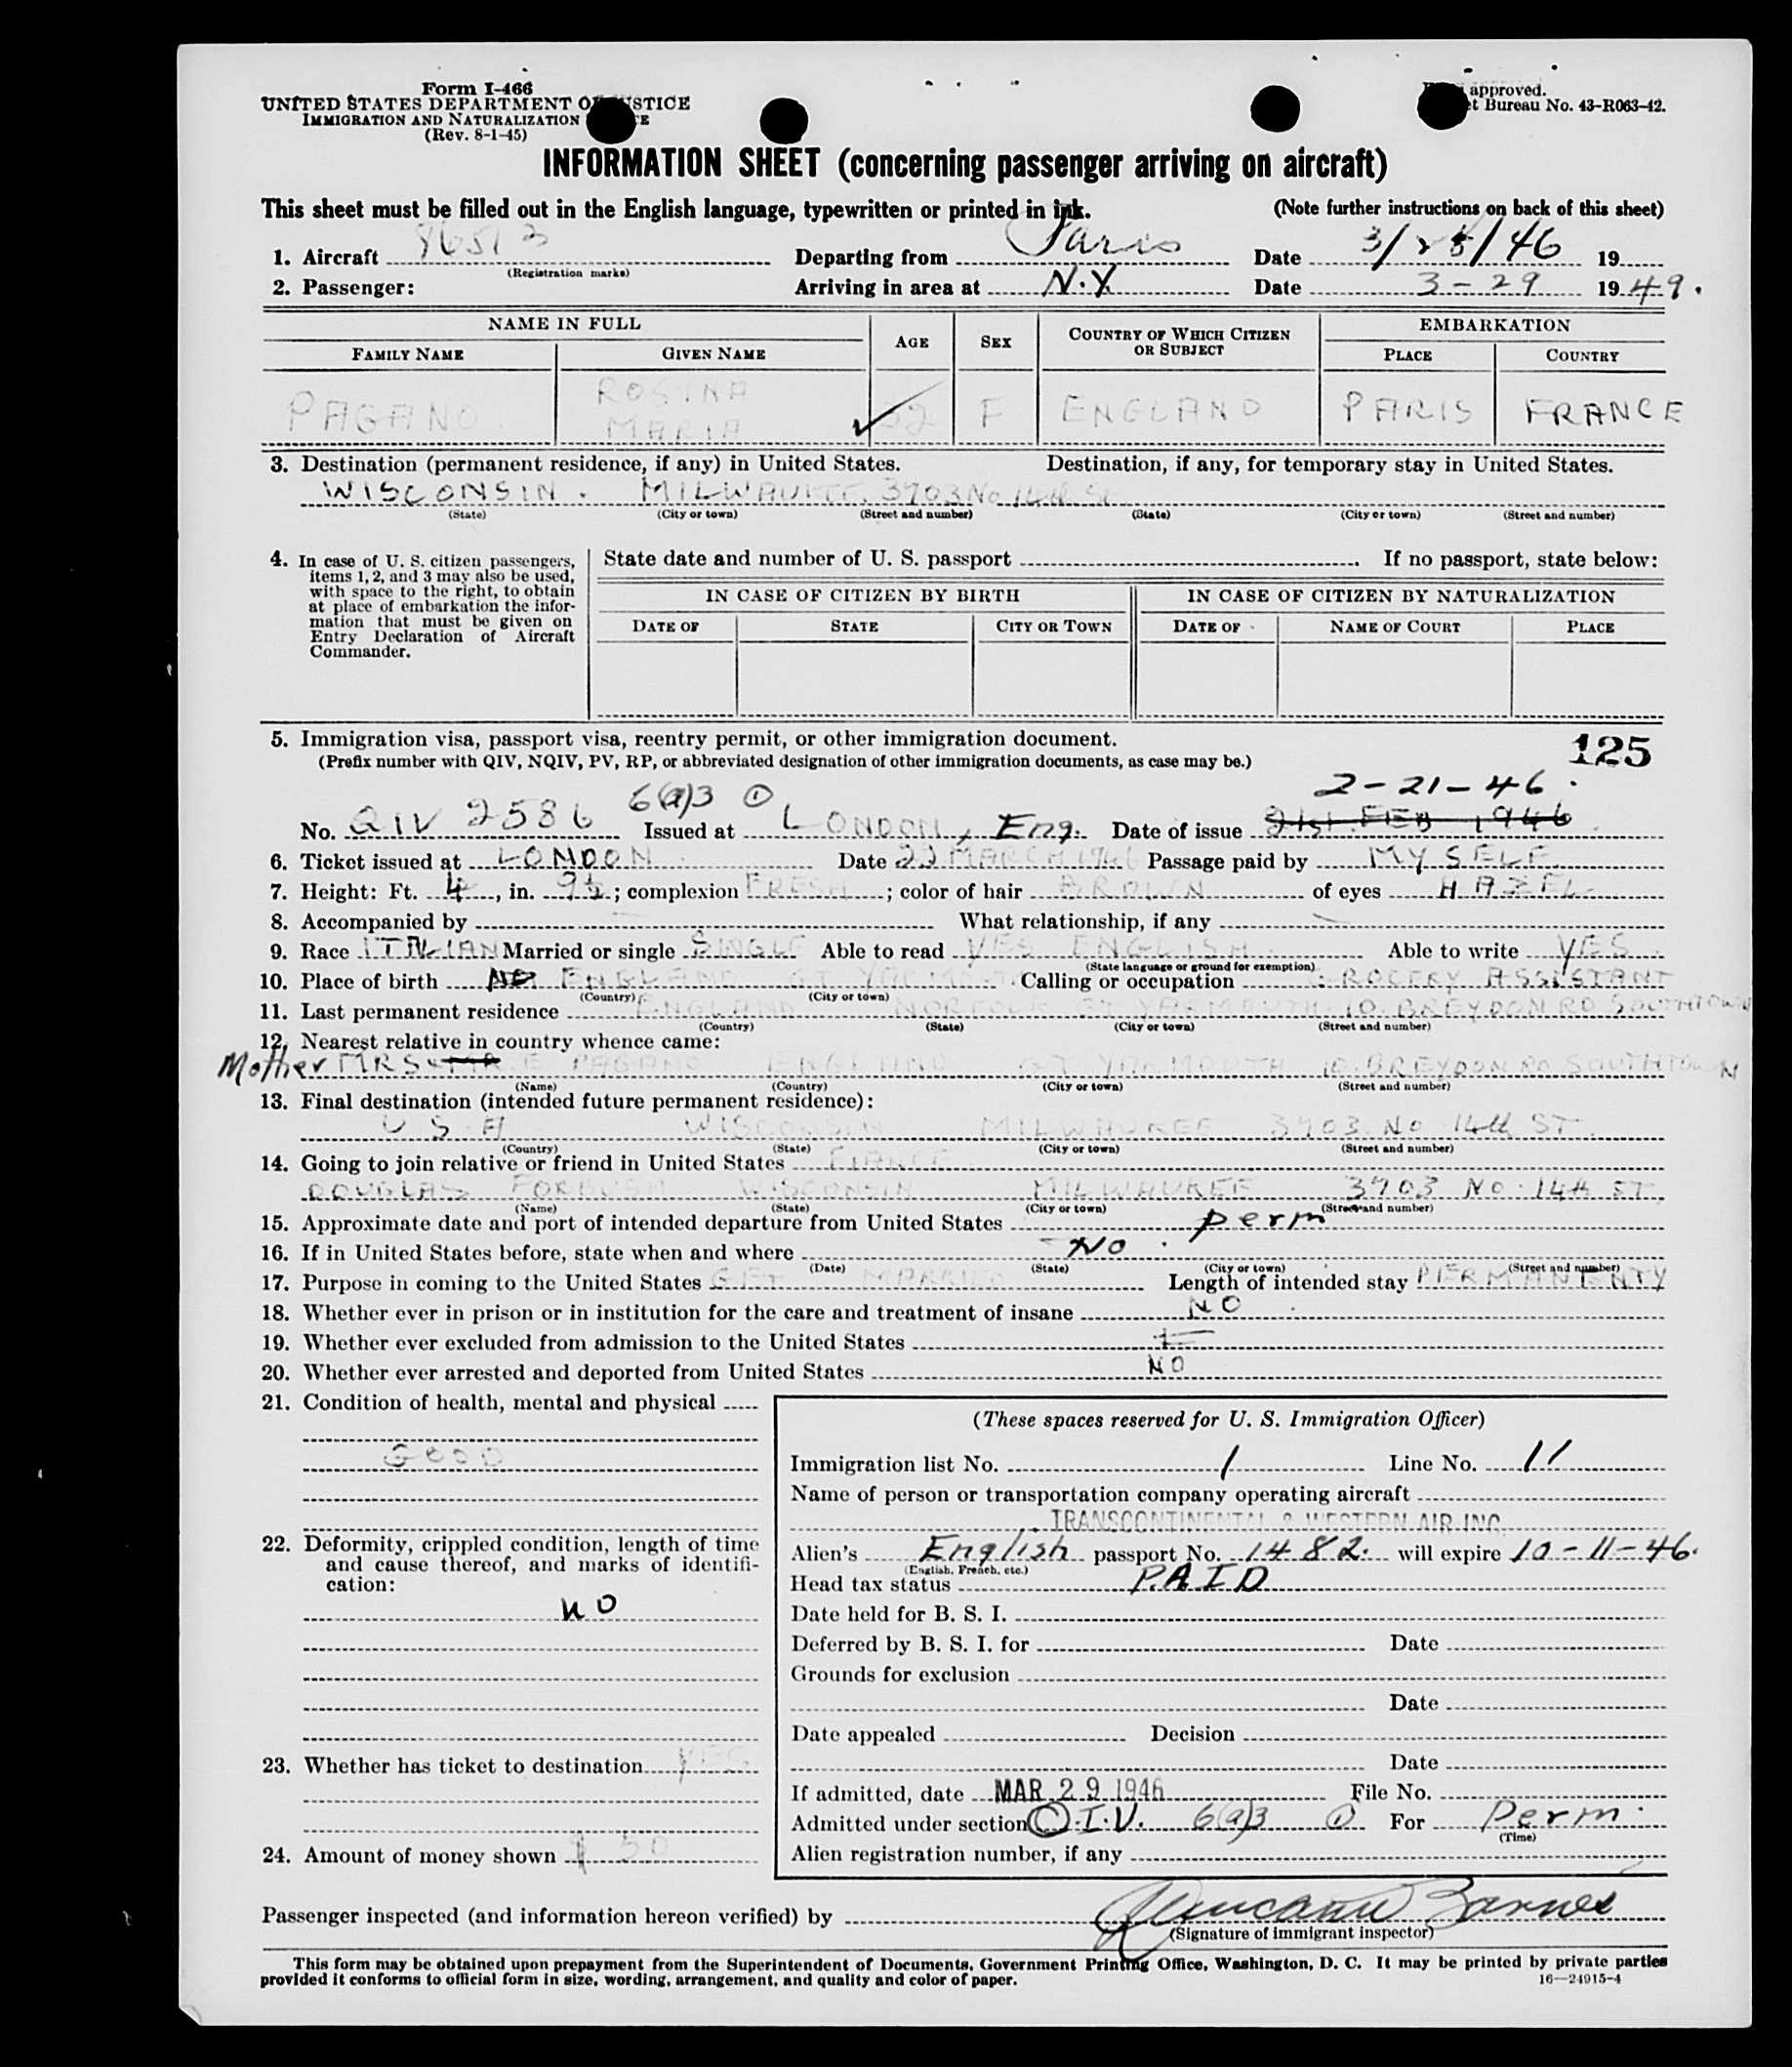 Form I-466
UNITED STATES DEPARTMENT OF JUSTICE
IMMIGRATION AND NATURALIZATION
(Rev. 8-1-45)
approved.
Bureau No. 43-R063-42.
INFORMATION SHEET (concerning passenger arriving on aircraft)
This sheet must be filled out in the English language, typewritten or printed in ink. (Note further instructions on back of this sheet)
1. Aircraft 86513 Departing from Paris Date 3/ /46 19
(Registration marks)
2. Passenger: Arriving in area at N.Y. Date 3-29 1949.
NAME IN FULL AGE SEX COUNTRY OF WHICH CITIZEN OR SUBJECT EMBARKATION
FAMILY NAME GIVEN NAME PLACE COUNTRY
PAGANO ROSINA MARIA 32 F ENGLAND PARIS FRANCE
3. Destination (permanent residence, if any) in United States. Destination, if any, for temporary stay in United States.
WISCONSIN. MILWAUKEE. 3903 No 14th St
(State) (City or town) (Street and number) (State) (City or town) (Street and number)
4. In case of U. S. citizen passengers, items 1, 2, and 3 may also be used, with space to the right, to obtain at place of embarkation the information that must be given on Entry Declaration of Aircraft Commander.
State date and number of U. S. passport . If no passport, state below:
IN CASE OF CITIZEN BY BIRTH IN CASE OF CITIZEN BY NATURALIZATION
DATE OF STATE CITY OR TOWN DATE OF NAME OF COURT PLACE
5. Immigration visa, passport visa, reentry permit, or other immigration document. 125
(Prefix number with QIV, NQIV, PV, RP, or abbreviated designation of other immigration documents, as case may be.)
6(a)3 ① 2-21-46
No. QIV 2586 Issued at LONDON, Eng. Date of issue 21st FEB 1946
6. Ticket issued at LONDON Date 22 MARCH 1946 Passage paid by MYSELF
7. Height: Ft. 4, in. 9½; complexion FRESH; color of hair BROWN of eyes HAZEL
8. Accompanied by What relationship, if any
9. Race ITALIAN Married or single SINGLE Able to read YES ENGLISH Able to write YES
(State language or ground for exemption)
10. Place of birth ENGLAND GT YARMOUTH Calling or occupation GROCERY ASSISTANT
(Country) (City or town)
11. Last permanent residence ENGLAND NORFOLK GT YARMOUTH 10. BREYDON RD SOUTHTOWN
(Country) (State) (City or town) (Street and number)
12. Nearest relative in country whence came:
Mother MRS E PAGANO ENGLAND GT YARMOUTH 10. BREYDON RD SOUTHTOWN
(Name) (Country) (City or town) (Street and number)
13. Final destination (intended future permanent residence):
U S A WISCONSIN MILWAUKEE 3903 No 14th ST.
(Country) (State) (City or town) (Street and number)
14. Going to join relative or friend in United States FIANCE
DOUGLAS FORBUSH WISCONSIN MILWAUKEE 3903 No. 14th ST.
(Name) (State) (City or town) (Street and number)
15. Approximate date and port of intended departure from United States perm
16. If in United States before, state when and where No.
(Date) (State) (City or town) (Street and number)
17. Purpose in coming to the United States GET MARRIED Length of intended stay PERMANENTY
18. Whether ever in prison or in institution for the care and treatment of insane NO
19. Whether ever excluded from admission to the United States
20. Whether ever arrested and deported from United States NO
21. Condition of health, mental and physical
GOOD
22. Deformity, crippled condition, length of time and cause thereof, and marks of identification:
NO
23. Whether has ticket to destination YES
24. Amount of money shown 50
(These spaces reserved for U. S. Immigration Officer)
Immigration list No. 1 Line No. 11
Name of person or transportation company operating aircraft
TRANSCONTINENTAL & WESTERN AIR INC.
Alien's English passport No. 1482. will expire 10-11-46.
(English, French, etc.)
Head tax status PAID
Date held for B. S. I.
Deferred by B. S. I. for Date
Grounds for exclusion
Date
Date appealed Decision
Date
If admitted, date MAR 29 1946 File No.
Admitted under section Q.I.V. 6(a)3 ① For Perm.
(Time)
Alien registration number, if any
Passenger inspected (and information hereon verified) by Barnes
(Signature of immigrant inspector)
This form may be obtained upon prepayment from the Superintendent of Documents, Government Printing Office, Washington, D. C. It may be printed by private parties
provided it conforms to official form in size, wording, arrangement, and quality and color of paper. 16—24915-4